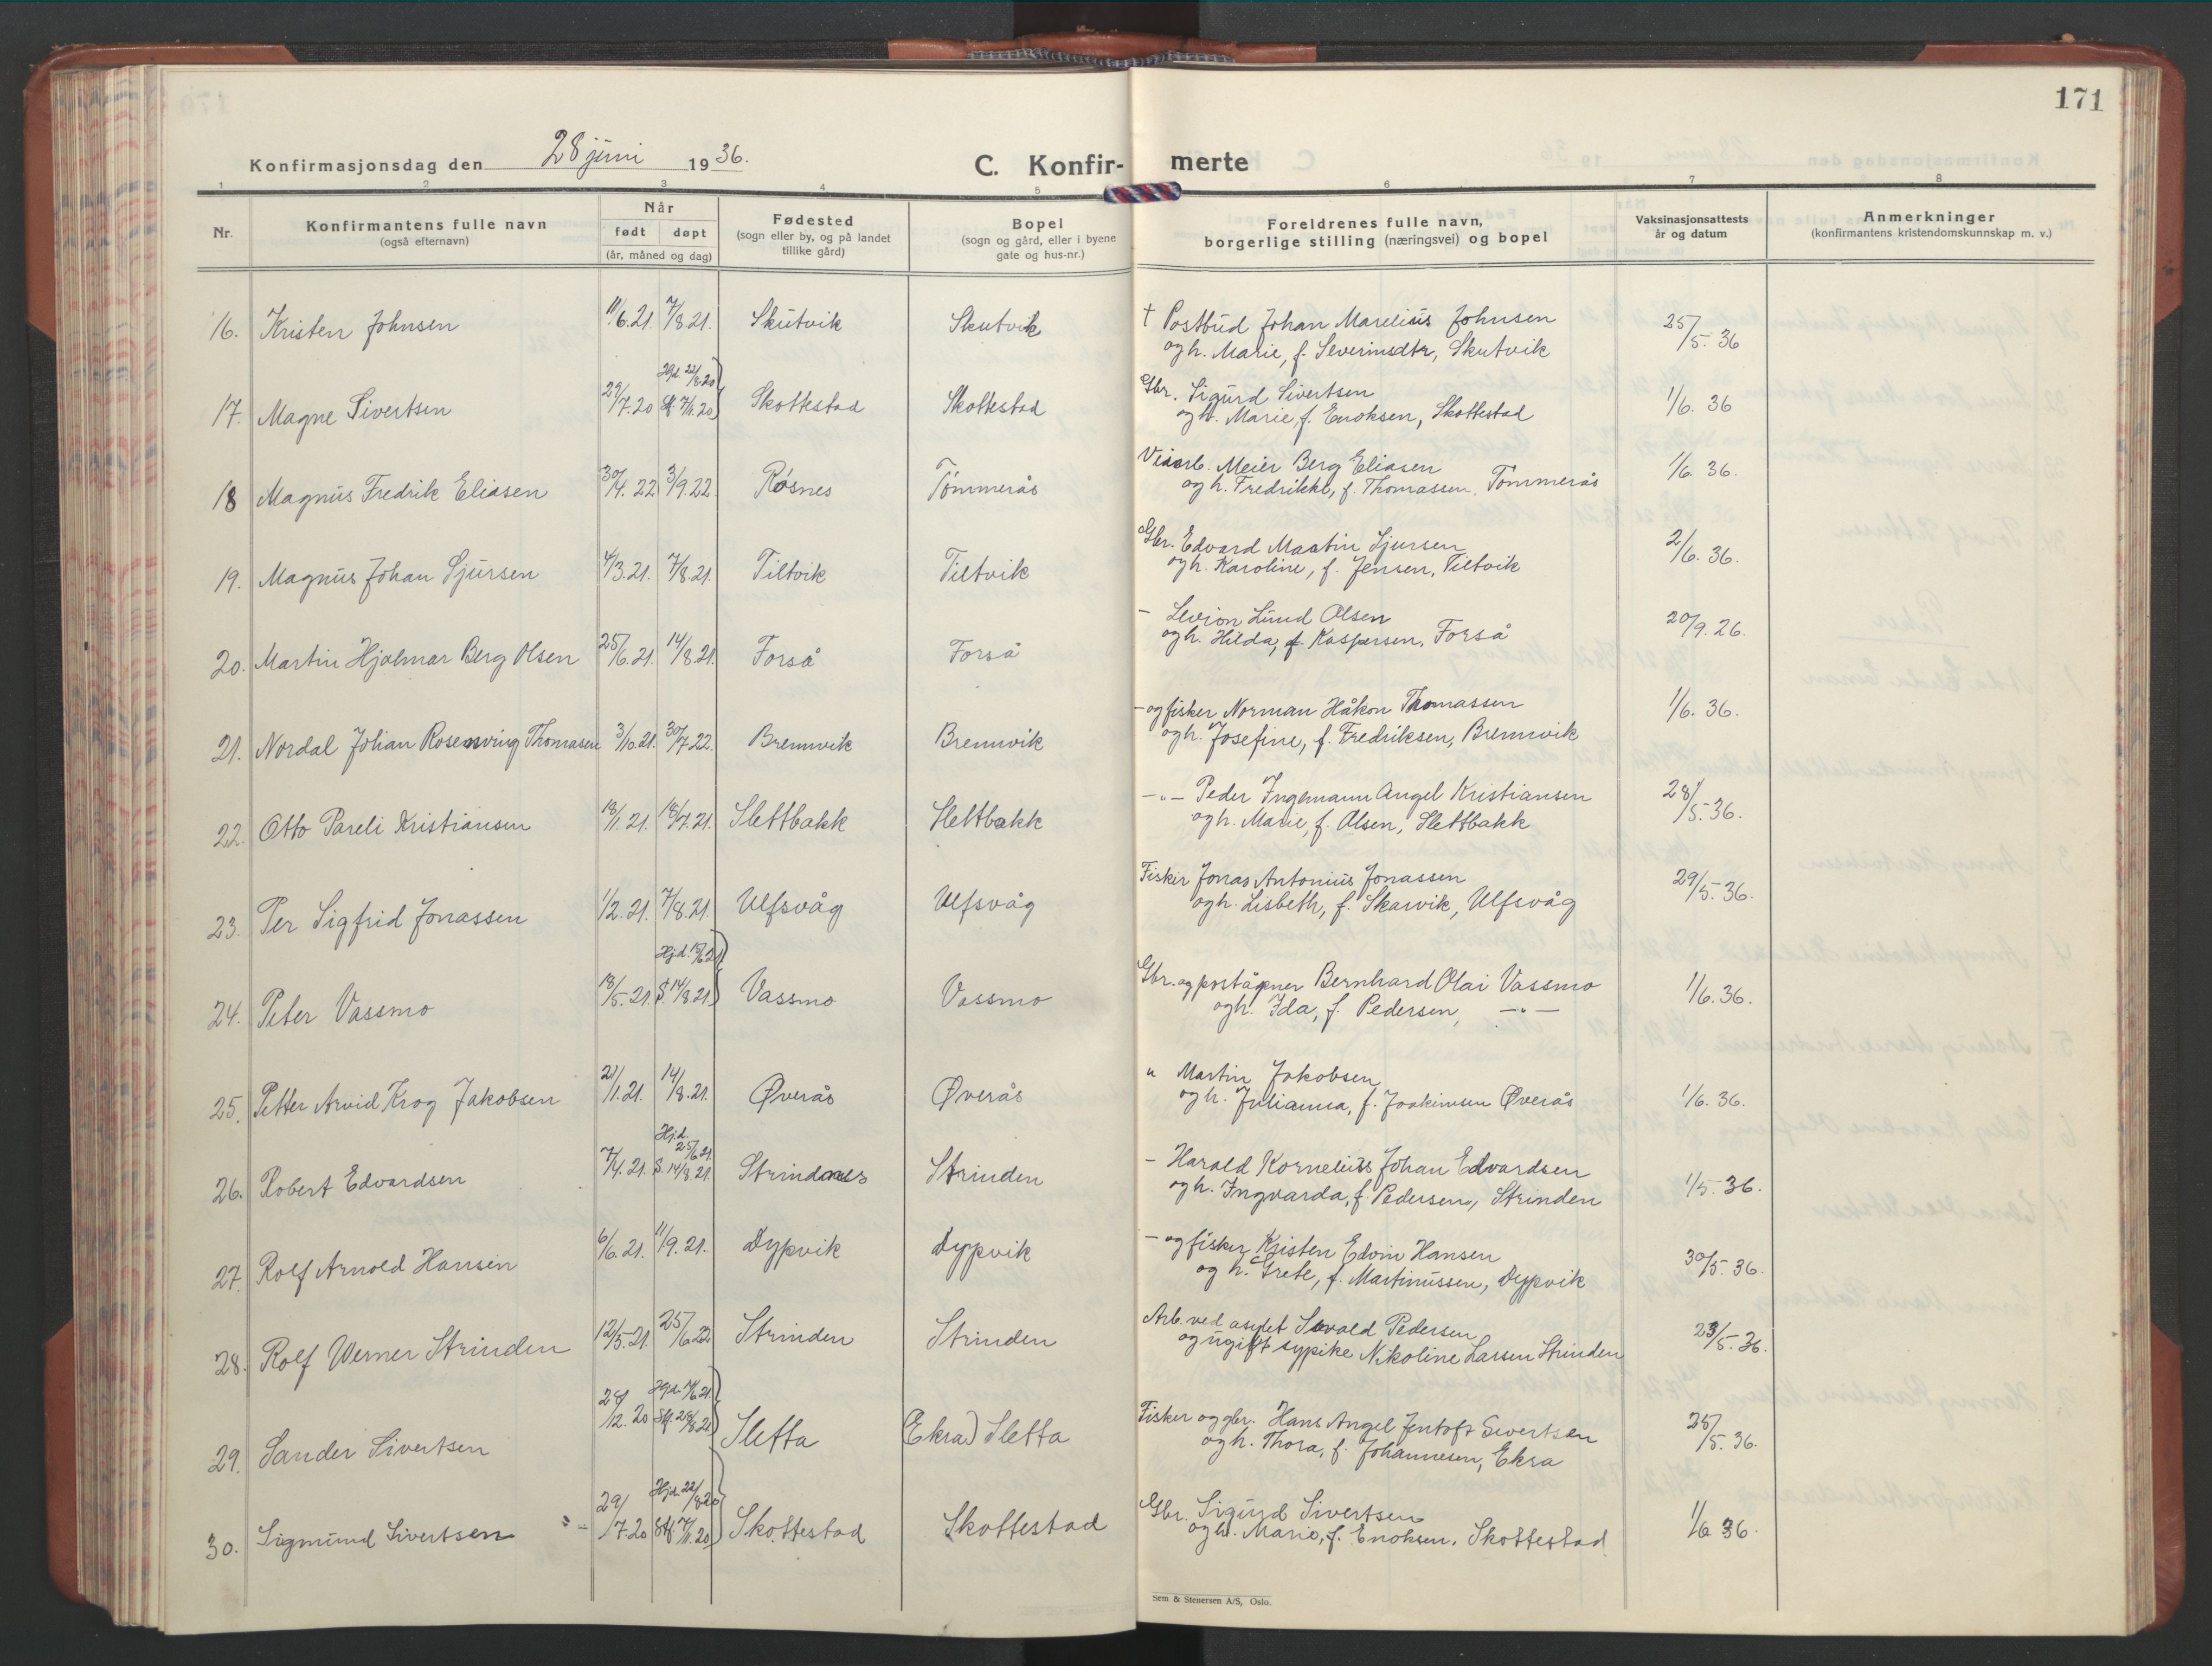 171
Konfirmasjonsdag den 28 juni 1936.
C. Konfirmerte
1 2 3 4 5 6 7 8
Nr.
Konfirmantens fulle navn
(også efternavn)
Når
født døpt
(år, måned og dag)
Fødested
(sogn eller by, og på landet
tillike gård)
Bopel
(sogn og gård, eller i byene
gate og hus-nr.)
Foreldrenes fulle navn,
borgerlige stilling (næringsvei) og bopel
Vaksinasjonsattests
år og datum
Anmerkninger
(konfirmantens kristendomskunnskap m. v.)
16. Kristen Johnsen 11/6.21. 7/8.21. Skutvik Skutvik † Postbud Johan Marelius Johnsen 25/5.36
og h. Marie, f. Severinsdtr, Skutvik
Hjd. 22/8.20
17. Magne Sivertsen 29/7.20 St. 7/11.20 Skottestad Skottestad Gbr. Sigurd Sivertsen 1/6.36
og h. Marie, f. Enoksen, Skottestad
18 Magnus Fredrik Eliasen 30/4.22 3/9.22. Røsnes Tømmerås Veiarb. Meier Berg Eliasen 1/6.36.
og h. Fredrikke, f. Thomassen, Tømmerås
19. Magnus Johan Sjursen 4/3.21. 7/8.21. Tiltvik Tiltvik Gbr. Edvard Martin Sjursen 2/6.36.
og h. Karoline, f. Jensen, Tiltvik
20. Martin Hjalmar Berg Olsen 25/6.21. 14/8.21. Forså Forså – Levion Lund Olsen 20/9.26.
og h. Hilda, f. Kaspersen, Forså
21. Nordal Johan Rosenving Thomasen 3/10.21. 30/7.22. Bremvik Bremvik – og fisker Norman Håkon Thomassen 1/6.36.
og h. Josefine, f. Fredriksen, Bremvik
22. Otto Pareli Kristiansen 18/1.21. 18/7.21. Slettbakk Slettbakk –"– Peder Ingemann Angel Kristiansen 28/5.36.
og h. Marie, f. Olsen, Slettbakk
23. Per Sigfrid Jonassen 1/2.21. 7/8.21. Ulfsvåg Ulfsvåg Fisker Jonas Antonius Jonassen 29/5.36.
og h. Lisbeth, f. Skarvik, Ulfsvåg
24. Peter Vassmo 18/5.21. S. 14/8.21. Vassmo Vassmo Gbr. og poståpner Bernhard Olai Vassmo 1/6.36.
og h. Ida, f. Pedersen, –"–
25. Petter Arvid Krog Jakobsen 21/1.21. 14/8.21. Øverås Øverås " Martin Jakobsen 1/6.36.
og h. Julianna, f. Joakimsen Øverås
Hjd. 25/6.21.
26. Robert Edvardsen 7/4.21. S. 14/8.21. Strinden – Harald Kornelius Johan Edvardsen 1/5.36.
og h. Ingvarda, f. Pedersen, Strinden
27. Rolf Arnold Hansen 6/6.21. 11/9.21. Dypvik Dypvik – og fisker Kristen Edvin Hansen 30/5.36.
og h. Grete, f. Martinussen, Dypvik
28. Rolf Werner Strinden 12/5.21. 25/6.22 Strinden Strinden Arb. ved asylet Sevald Pedersen 23/5.36.
og ugift sypike Nikoline Larsen Strinden
29. Sander Sivertsen 28/12.20 Sletta (Ekra) Sletta Fisker og gbr. Hans Angel Jentoft Sivertsen 25/5.36.
og h. Thora, f. Johannesen, Ekra
Hjd. 22/8.20
30. Sigmund Sivertsen 29/7.20 St. 7/11.20 Skottestad Skottestad Gbr. Sigurd Sivertsen 1/6 36.
og h. Marie, f. Enoksen, Skottestad
Sem & Stenersen A/S, Oslo.